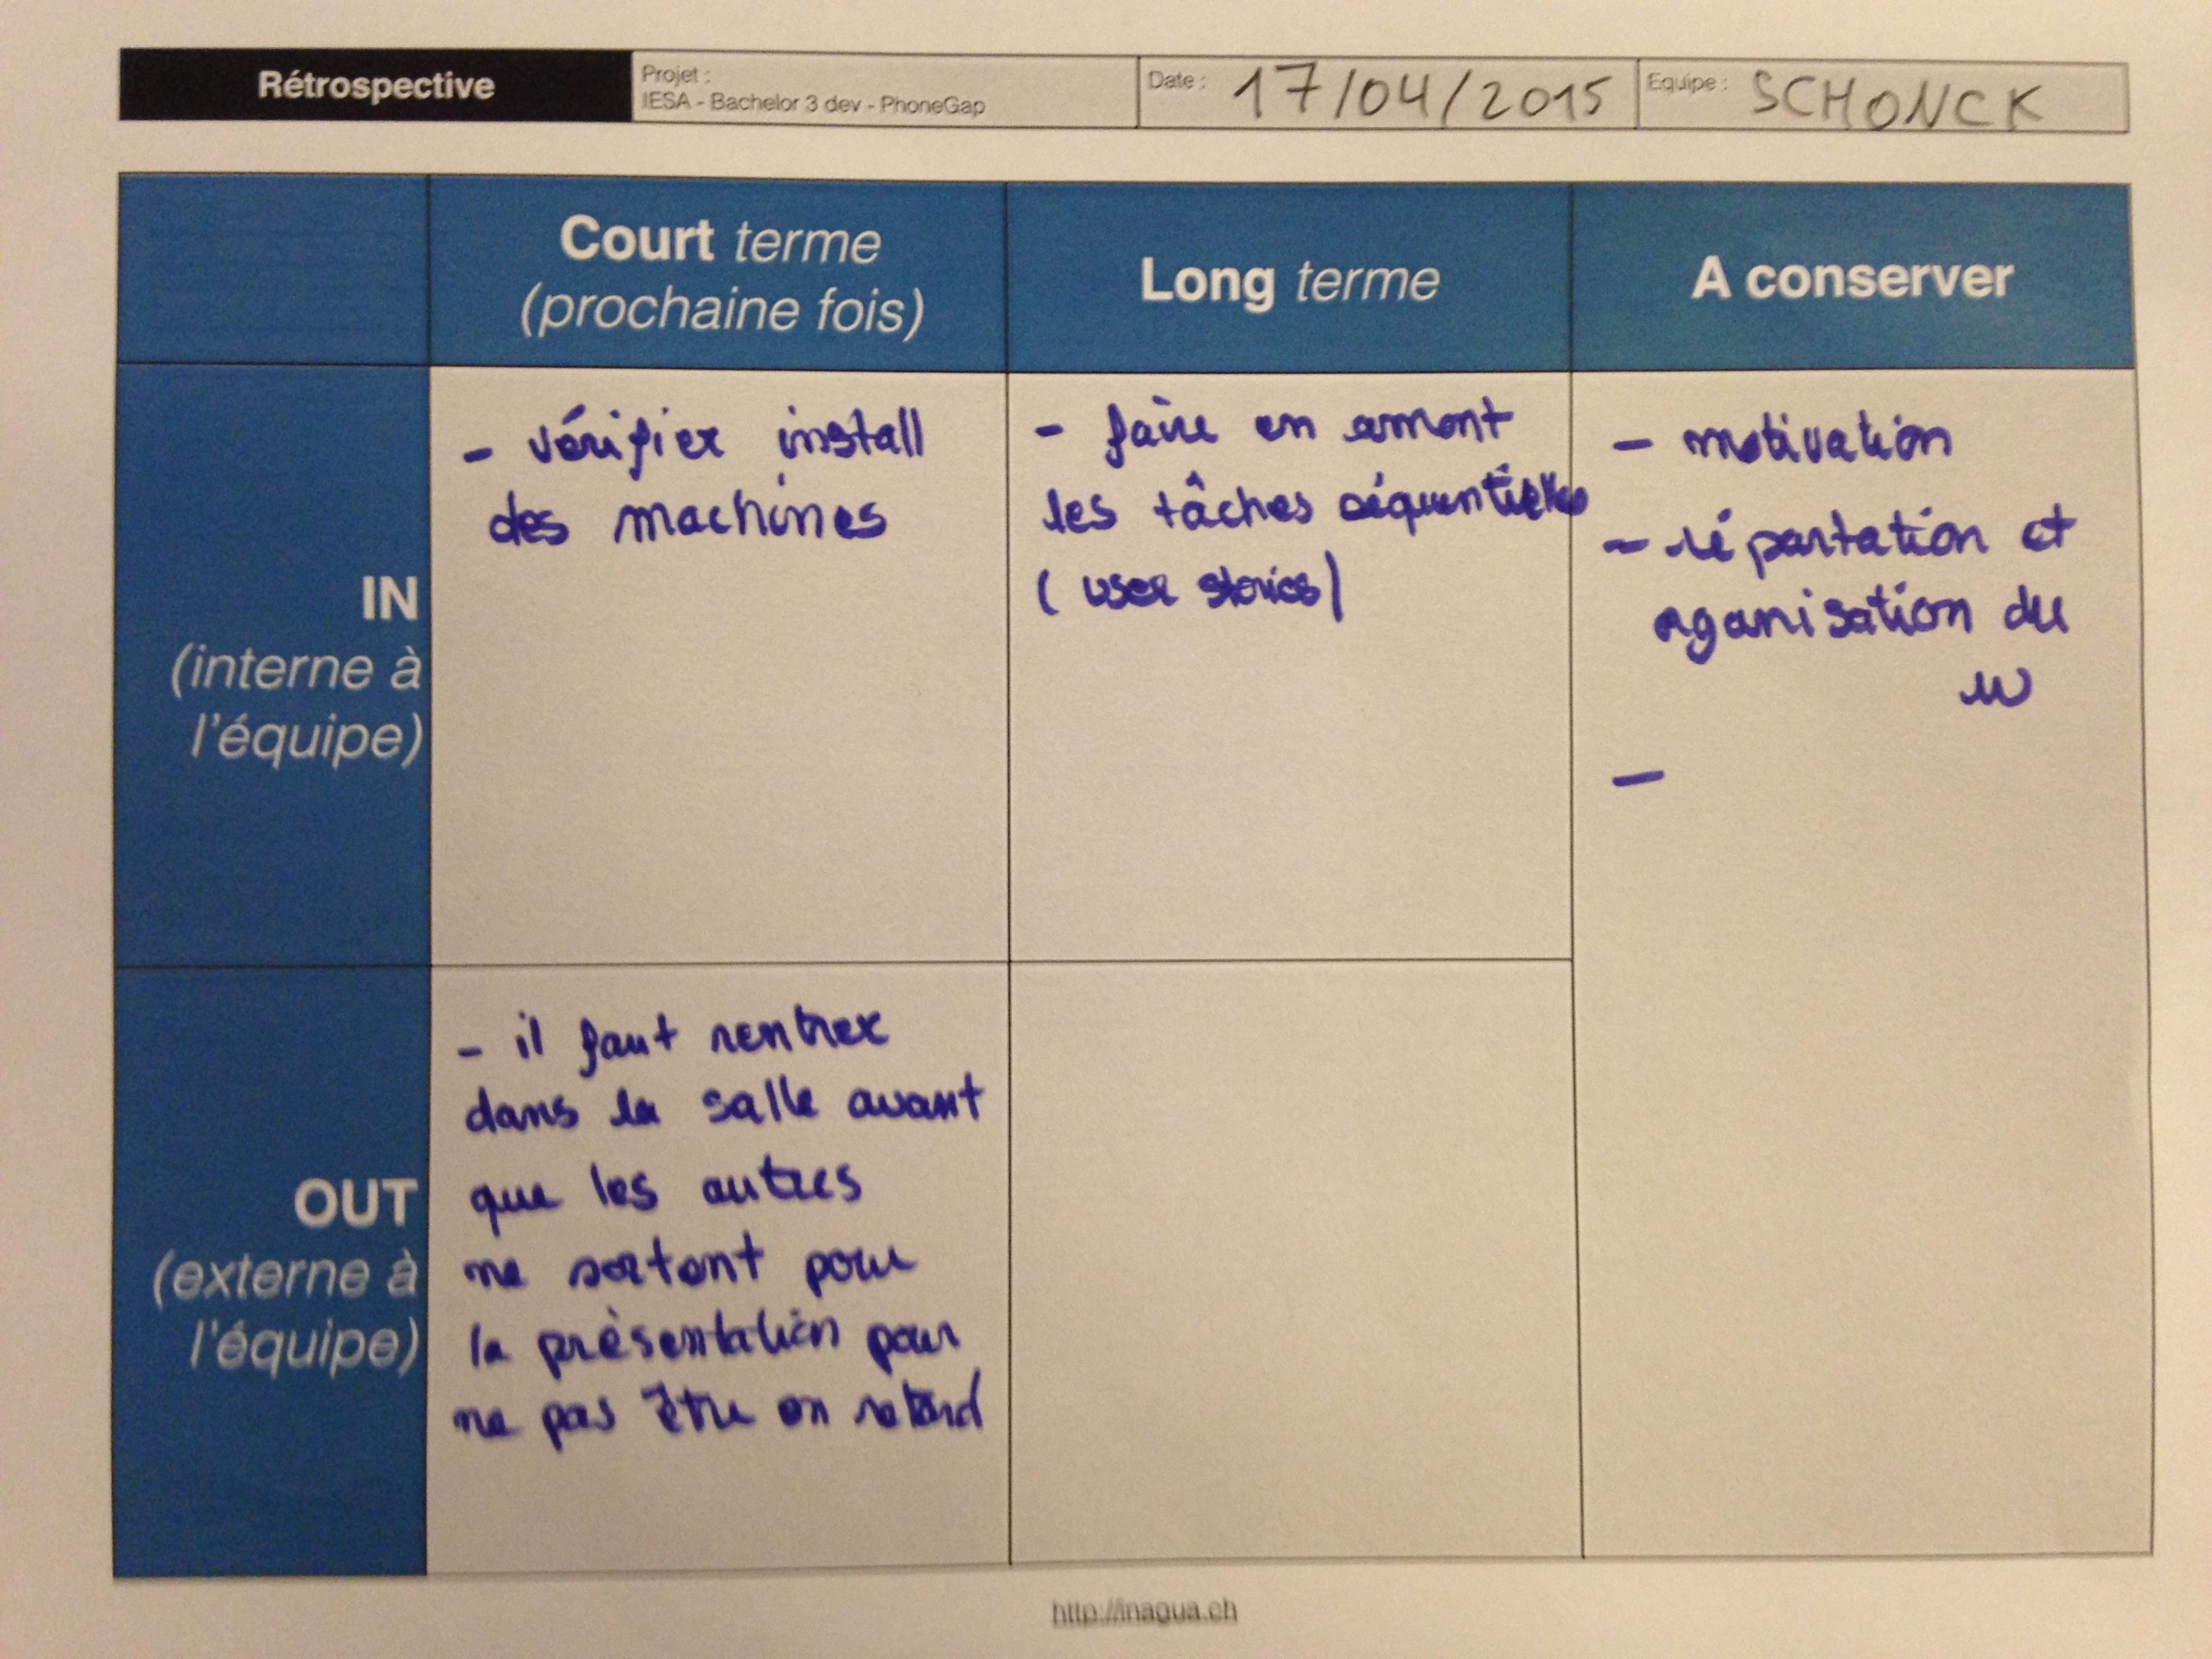 Rétrospective
Projet :
IESA - Bachelor 3 dev - PhoneGap
Date : 17/04/2015
Equipe : SCHONCK
Court terme
(prochaine fois)
Long terme
A conserver
IN
(interne à
l'équipe)
- vérifier install
des machines
- faire en amont
les tâches séquentielles
(user stories)
- motivation
- répartation et
organisation du
-
OUT
(externe à
l'équipe)
- il faut rentrer
dans la salle avant
que les autres
ne sortent pour
la présentation pour
ne pas être en retard
http://inagua.ch